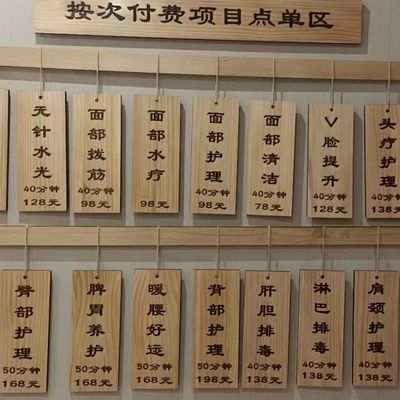 按次付费项目点单区
无针水光
40分钟
128元
面部拨筋
40分钟
98元
面部水疗
98元
面部护理
40分钟
98元
面部清洁
40分钟
78元
V脸提升
40分钟
128元
头疗护理
40分钟
138元
臀部护理
50分钟
168元
脾胃养护
50分钟
168元
暖腰好运
50分钟
168元
背部护理
50分钟
198元
肝胆排毒
40分钟
138元
淋巴排毒
40分钟
138元
肩颈护理
40分钟
138元